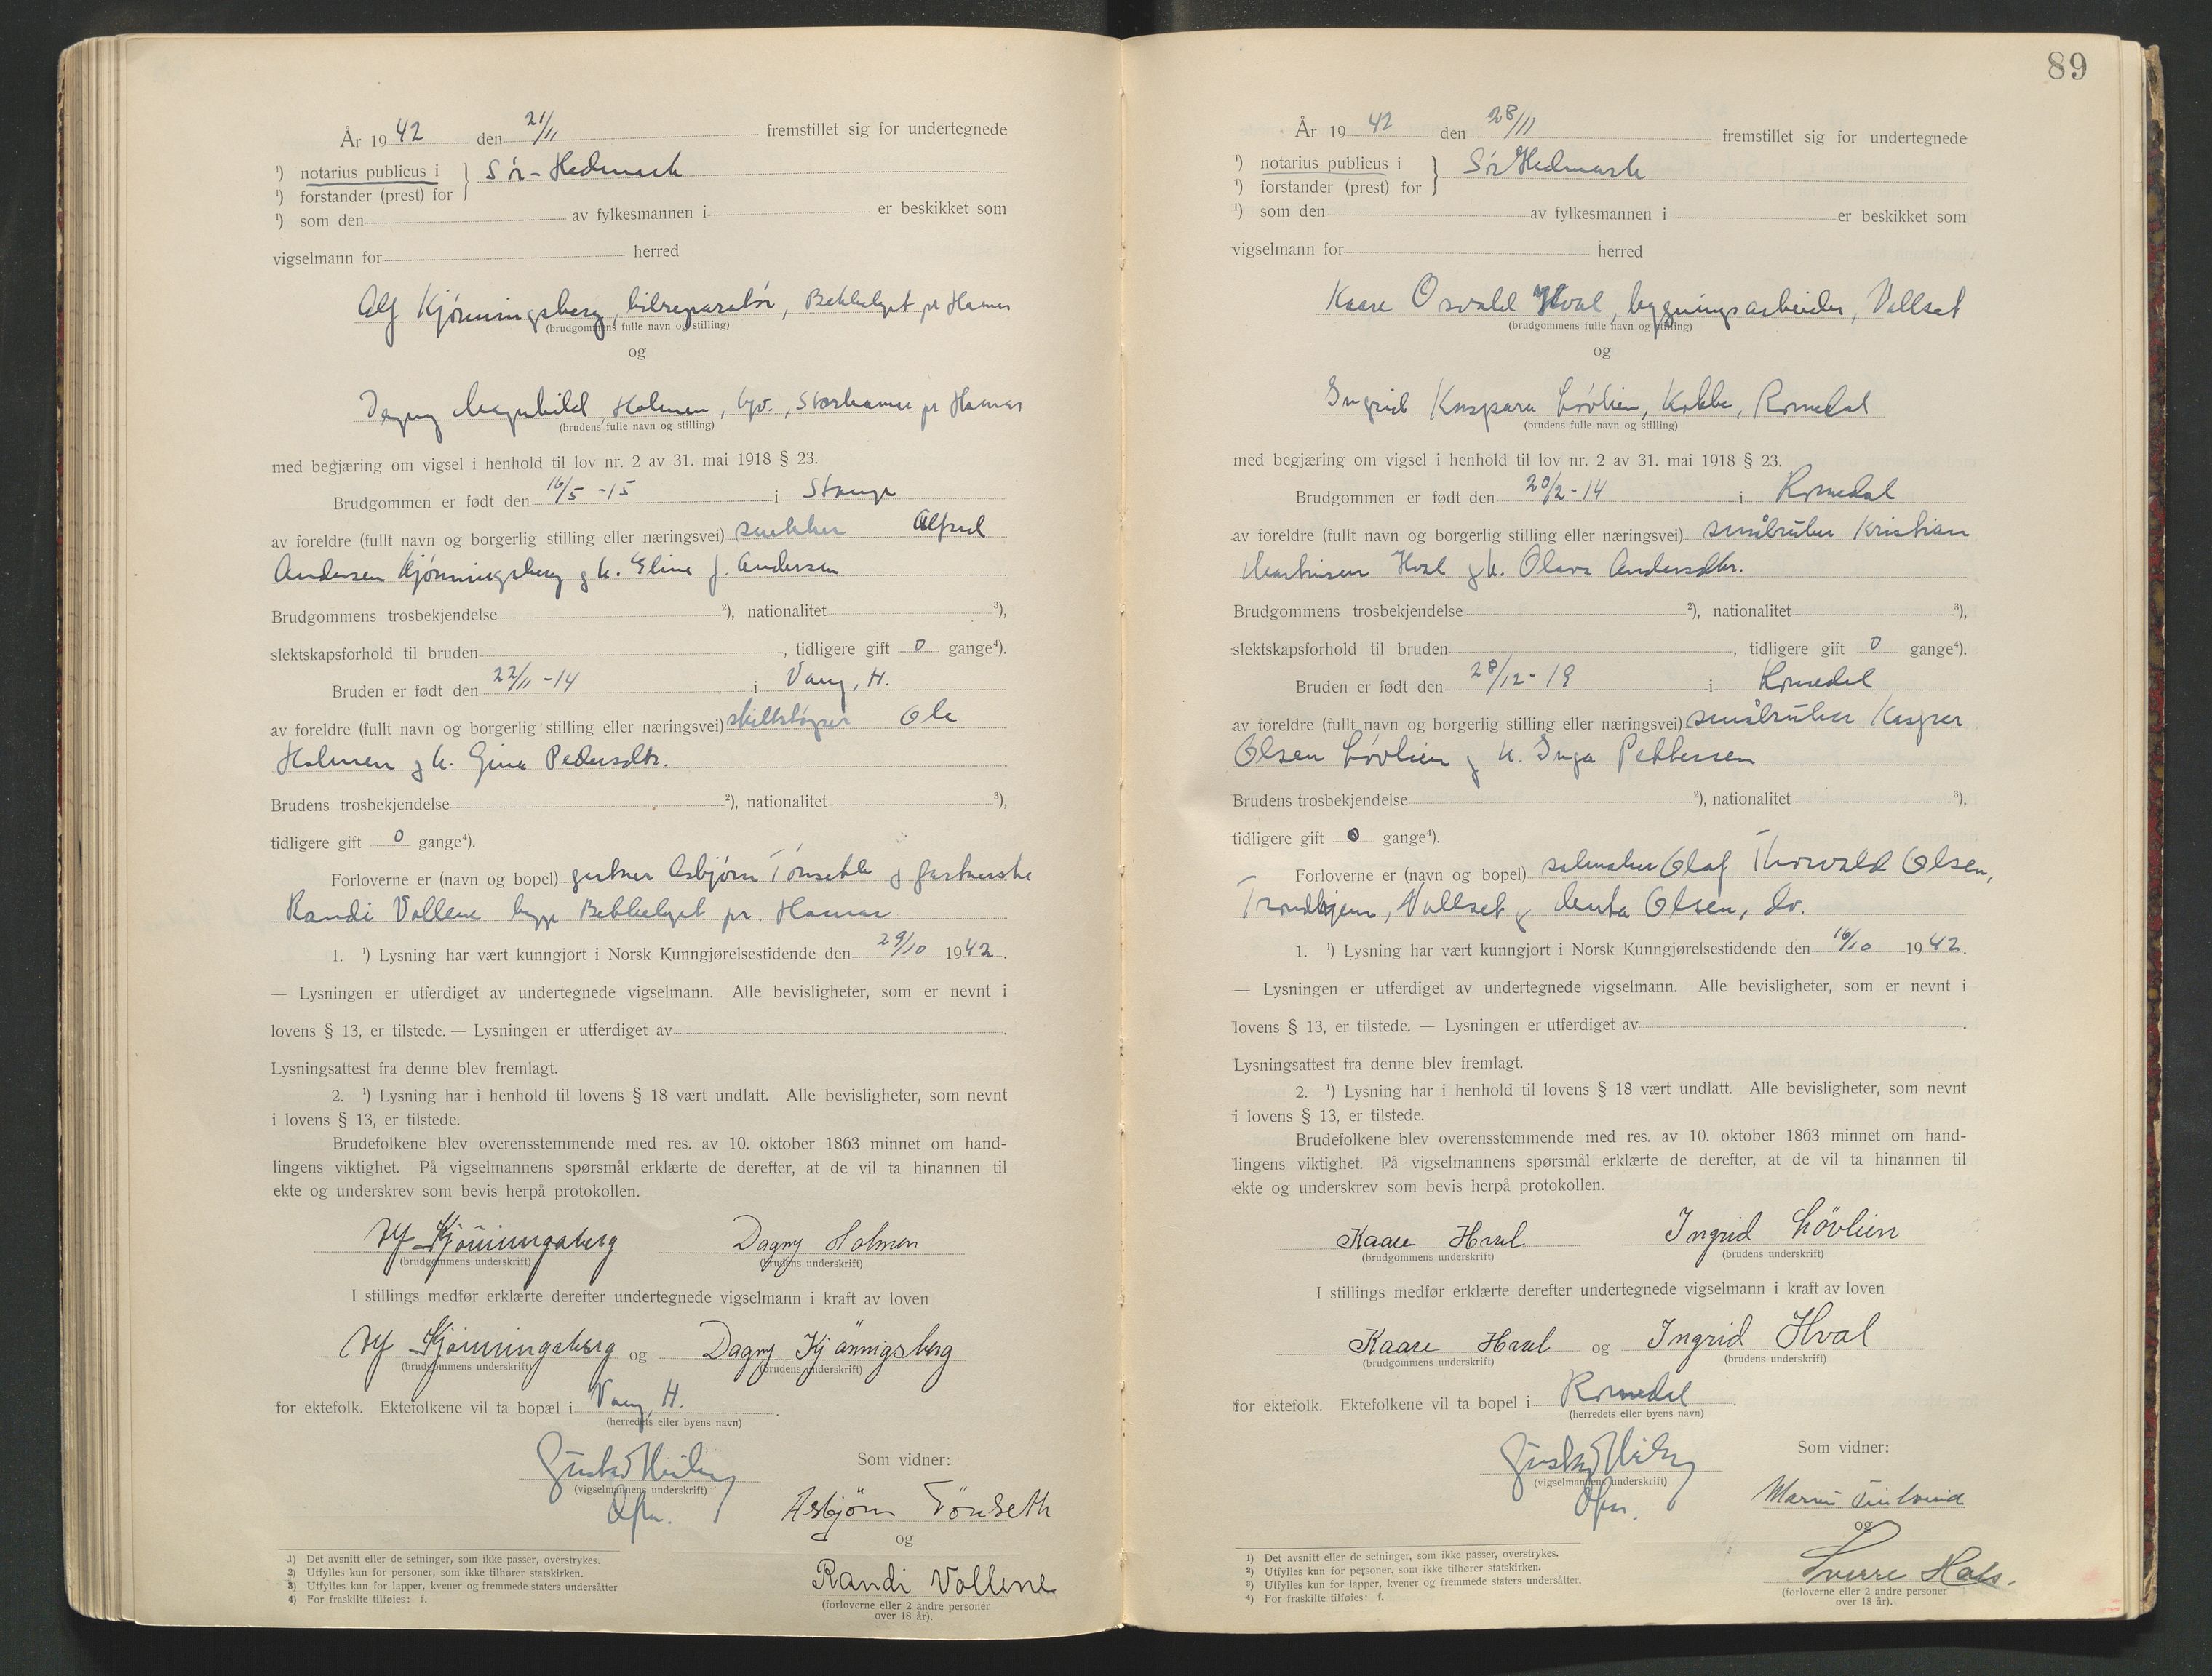 År 1942 den 21/11 fremstillet sig for undertegnede
¹) notarius publicus i } Sør-Hedmark
¹) forstander (prest) for
¹) som den av fylkesmannen i er beskikket som
vigselmann for herred
Alf Kjønningsberg, bilreparatør, Bekkelaget pr Hamar
(brudgommens fulle navn og stilling)
og
Dagny Magnhild Holmen, Storhamar pr Hamar
(brudens fulle navn og stilling)
med begjæring om vigsel i henhold til lov nr. 2 av 31. mai 1918 § 23.
Brudgommen er født den 16/5 -15 i Stange
av foreldre (fullt navn og borgerlig stilling eller næringsvei) snekker Alfred
Andersen Kjønningsberg og h. Eline f. Andersen
Brudgommens trosbekjendelse ²), nationalitet ³),
slektskapsforhold til bruden , tidligere gift 0 gange⁴).
Bruden er født den 22/11 -14 i Vang, H.
av foreldre (fullt navn og borgerlig stilling eller næringsvei) Ole
Holmen og h. Gina Pedersdtr.
Brudens trosbekjendelse ²), nationalitet ³),
tidligere gift 0 gange⁴).
Forloverne er (navn og bopel) gartner Asbjørn Tønseth og gartnerske
Randi Vollene begge Bekkelaget pr. Hamar
1. ¹) Lysning har vært kunngjort i Norsk Kunngjørelsestidende den 29/10 1942.
— Lysningen er utferdiget av undertegnede vigselmann. Alle bevisligheter, som er nevnt i
lovens § 13, er tilstede. — Lysningen er utferdiget av .
Lysningsattest fra denne blev fremlagt.
2. ¹) Lysning har i henhold til lovens § 18 vært undlatt. Alle bevisligheter, som nevnt
i lovens § 13, er tilstede.
Brudefolkene blev overensstemmende med res. av 10. oktober 1863 minnet om hand-
lingens viktighet. På vigselmannens spørsmål erklærte de derefter, at de vil ta hinannen til
ekte og underskrev som bevis herpå protokollen.
Alf Kjønningsberg Dagny Holmen
(brudgommens underskrift) (brudens underskrift)
I stillings medfør erklærte derefter undertegnede vigselmann i kraft av loven
Alf Kjønningsberg og Dagny Kjønnigsberg
(brudgommens underskrift) (brudens underskrift)
for ektefolk. Ektefolkene vil ta bopæl i Vang, H. .
(herredets eller byens navn)
Gustav Heiberg Som vidner:
(vigselmannens underskrift)
Asbjørn Tönseth
og
Randi Vollene
(forloverne eller 2 andre personer
over 18 år).
1) Det avsnitt eller de setninger, som ikke passer, overstrykes.
2) Utfylles kun for personer, som ikke tilhører statskirken.
3) Utfylles kun for lapper, kvener og fremmede staters undersåtter
4) For fraskilte tilføies: f.
89
År 1942 den 28/11 fremstillet sig for undertegnede
¹) notarius publicus i } Sør Hedmark
¹) forstander (prest) for
¹) som den av fylkesmannen i er beskikket som
vigselmann for herred
Kaare Osvald Hval, bygningsarbeider, Vallset
(brudgommens fulle navn og stilling)
og
Ingrid Kaspara Løvlien, Kokke, Romedal
(brudens fulle navn og stilling)
med begjæring om vigsel i henhold til lov nr. 2 av 31. mai 1918 § 23.
Brudgommen er født den 20/2 - 14 i Romedal
av foreldre (fullt navn og borgerlig stilling eller næringsvei) småbruker Kristian
Martinsen Hval og h. Olava Andersdtr.
Brudgommens trosbekjendelse ²), nationalitet ³),
slektskapsforhold til bruden , tidligere gift 0 gange⁴).
Bruden er født den 28/12 - 19 i Romedal
av foreldre (fullt navn og borgerlig stilling eller næringsvei) småbruker Kasper
Olsen Løvlien og h. Inga Pettersen
Brudens trosbekjendelse ²), nationalitet ³),
tidligere gift 0 gange⁴).
Forloverne er (navn og bopel) salmaker Olaf Thorvald Olsen,
Trondhjem, Vallset og Olsen, do.
1. ¹) Lysning har vært kunngjort i Norsk Kunngjørelsestidende den 16/10 1942.
— Lysningen er utferdiget av undertegnede vigselmann. Alle bevisligheter, som er nevnt i
lovens § 13, er tilstede. — Lysningen er utferdiget av .
Lysningsattest fra denne blev fremlagt.
2. ¹) Lysning har i henhold til lovens § 18 vært undlatt. Alle bevisligheter, som nevnt
i lovens § 13, er tilstede.
Brudefolkene blev overensstemmende med res. av 10. oktober 1863 minnet om hand-
lingens viktighet. På vigselmannens spørsmål erklærte de derefter, at de vil ta hinannen til
ekte og underskrev som bevis herpå protokollen.
Kaare Hval Ingrid Løvlien
(brudgommens underskrift) (brudens underskrift)
I stillings medfør erklærte derefter undertegnede vigselmann i kraft av loven
Kaare Hval og Ingrid Hval
(brudgommens underskrift) (brudens underskrift)
for ektefolk. Ektefolkene vil ta bopel i Romedal .
(herredets eller byens navn)
Gustav Heiberg Som vidner:
(vigselmannens underskrift)
og
Sverre Hals.
(forloverne eller 2 andre personer
over 18 år).
¹) Det avsnitt eller de setninger, som ikke passer, overstrykes.
²) Utfylles kun for personer, som ikke tilhører statskirken.
³) Utfylles kun for lapper, kvener og fremmede staters undersåtter.
⁴) For fraskilte tilføies: f.